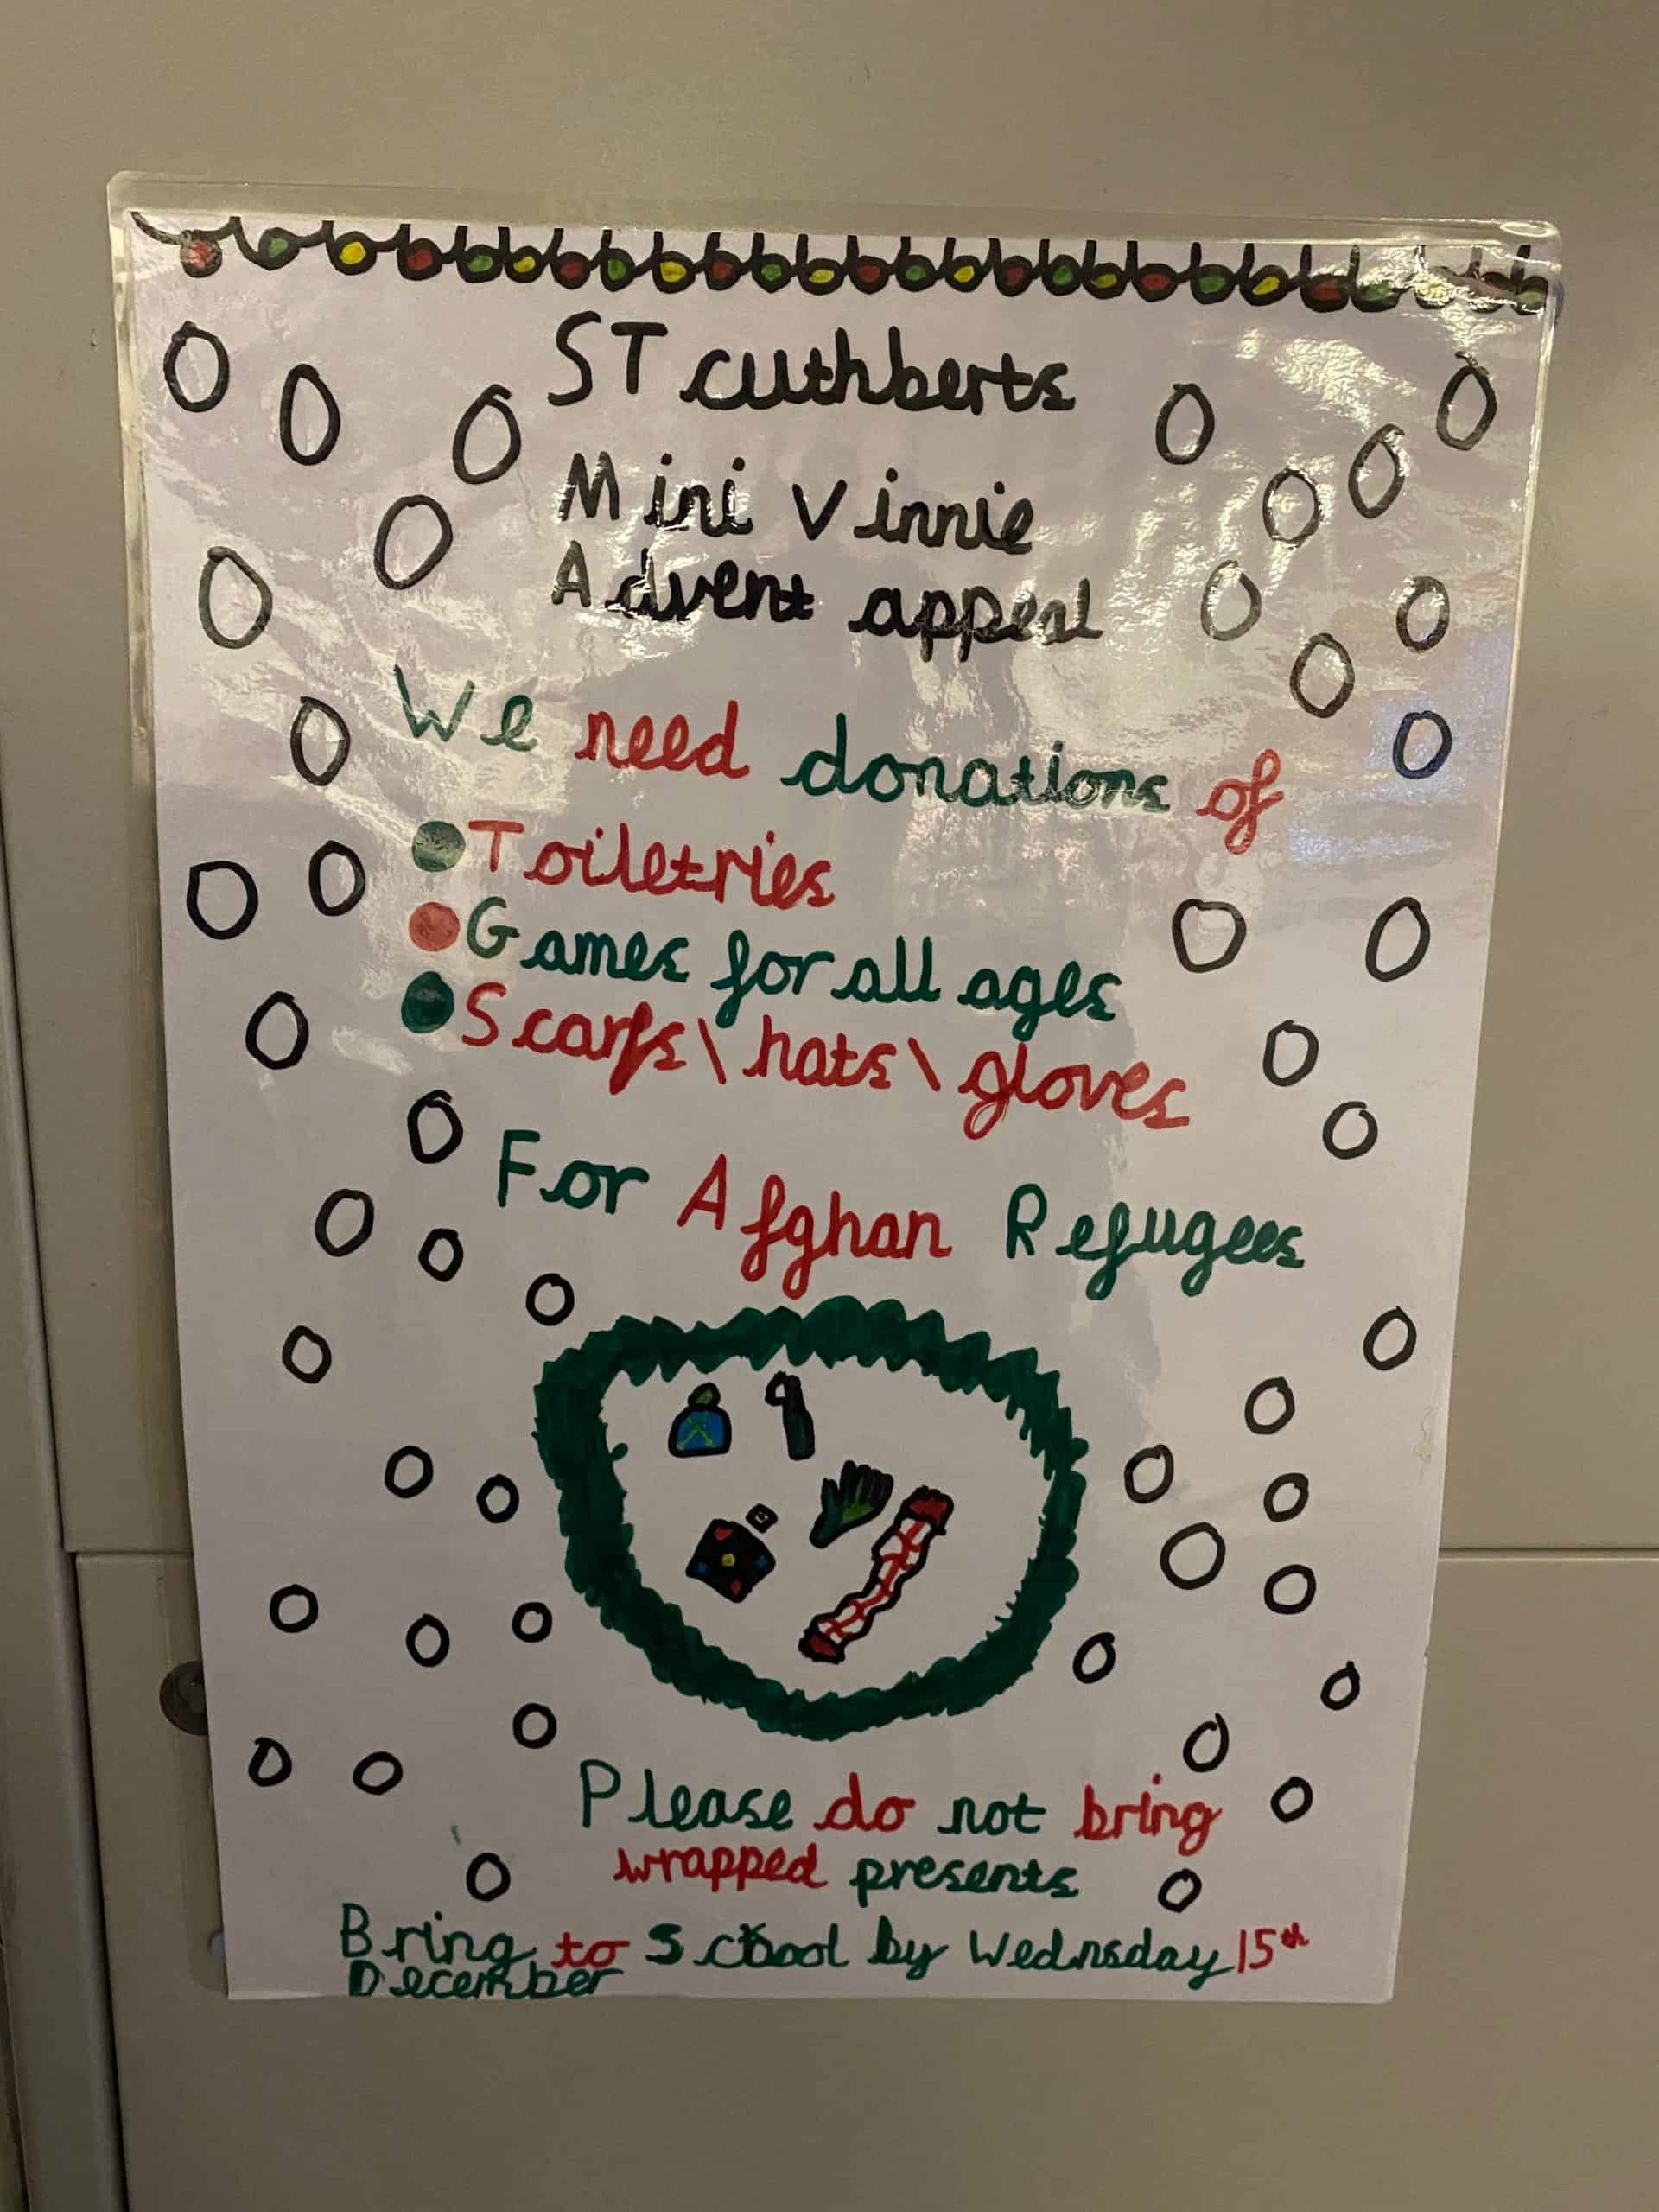 ST cuthberts
Mini Vinnie
Advent appeal
We need donations of
Toiletries
Games for all ages
Scarfs\hats\gloves
For Afghan Refugees
Please do not bring
wrapped presents
Bring to School by Wednsday 15th
December